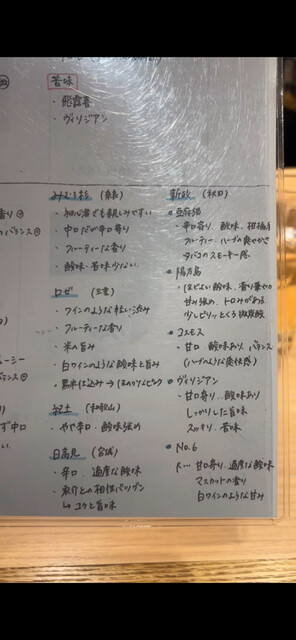 苦味
・飛露喜
・ヴィリジアン
みむろ杉 (奈良)
・初心者でも親しみやすい
・中口だが辛口寄り
・フルーティーな香り
・酸味・苦味少ない
ロゼ (三重)
・ワインのような軽い渋み
・フルーティーな香り
・米の旨み
・白ワインのような酸味と旨み
・黒米仕込み→ほのかなピンク
紀土 (和歌山)
・やや辛口・酸味強め
日高見 (宮城)
・辛口 適度な酸味
・魚介との相性バツグン
↳コクと旨味
新政 (秋田)
亜麻猫
・辛口寄り、酸味、柑橘系
フルーティー ハーブの爽やかさ
タバコのスモーキー感
陽乃鳥
・ほどよい酸味、香り華やか
甘み強め、トロみがある
少しピリッとくる微炭酸
コスモス
・甘口 酸味あり、バランス
(ハーブのような爽快感)
ヴィリジアン
・甘口寄り、酸味あり
しっかりした旨味
スッキリ、苦味
No.6
R… 甘口寄り、適度な酸味
マスカットの香り
白ワインのような甘み